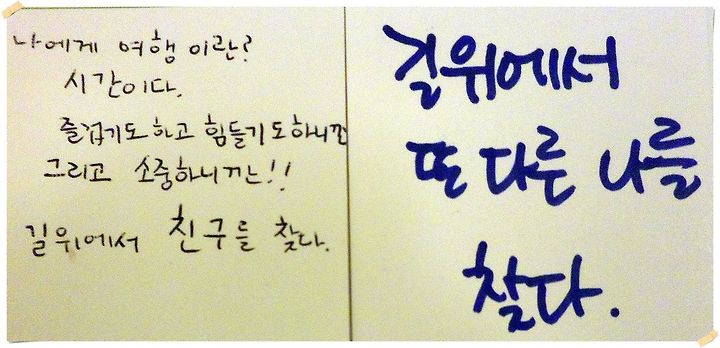 나에게 여행 이란?
시간이다.
즐겁기도하고 힘들기도하니깐
그리고 소중하니까는!!
길위에서 친구를 찾다.
길위에서
또 다른 나를
찾다.